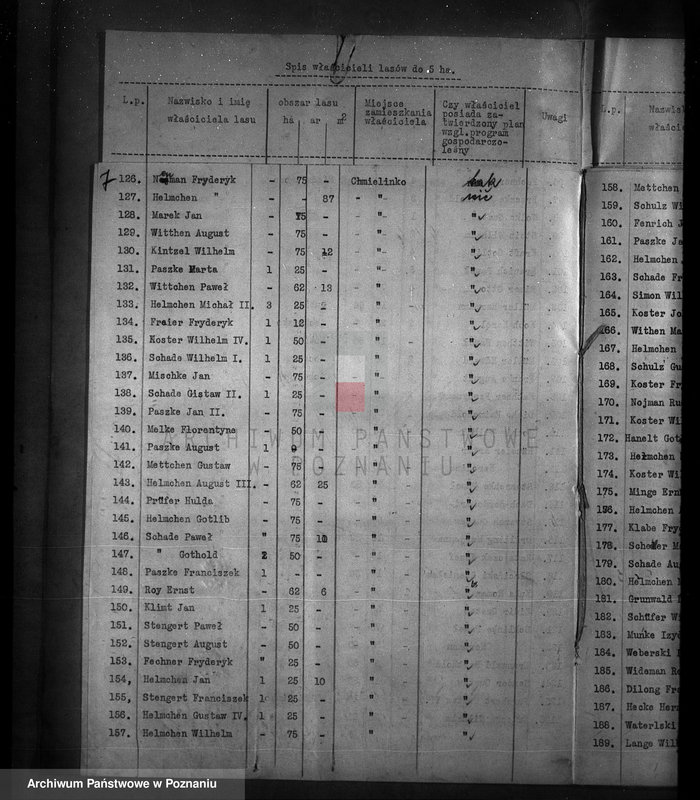 Spis właścicieli lasów do 5 ha.
L.p. Nazwisko i imię właściciela lasu obszar lasu ha ar m2 Miejsce zamieszkania właściciela Czy właściciel posiada zatwierdzony plan wzgl.program gospodarczo-leśny Uwagi
7 126. Nojman Fryderyk - 75 - Chmielinko
127. Helmchen " - - 87 - " - nie
128. Marek Jan - 75 - - " - "
129. Witthen August - 75 - - " - "
130. Kintzel Wilhelm - 75 12 - " - "
131. Paszke Marta 1 25 - - " - "
132. Wittchen Paweł - 62 13 - " - "
133. Helmchen Michał II. 3 25 - - " - "
134. Fraier Fryderyk 1 12 - - " - "
135. Koster Wilhelm IV. 1 50 - - " - "
136. Schade Wilhelm I. 1 25 - - " - "
137. Mischke Jan - 75 - - " - "
138. Schade Gistaw II. 1 25 - - " - "
139. Paszke Jan II. - 75 - - " - "
140. Melke Florentyna - 50 - - " - "
141. Paszke August 1 - - " - "
142. Mettchen Gustaw - 75 - - " - "
143. Helmchen August III. - 62 25 - " - "
144. Prüfer Hulda - 75 - - " - "
145. Helmchen Gotlib - 75 - - " - "
146. Schade Paweł " 75 - " - "
147. " Gothold 2 50 - - " - "
148. Paszke Franciszek 1 - - - " - "
149. Roy Ernst - 62 6 - " - "
150. Klimt Jan 1 25 - - " - "
151. Stengert Paweł - 50 - - " - "
152. Stengert August - 50 - - " - "
153. Fechner Fryderyk " 25 - - " - "
154, Helmchen Jan 1 25 10 - " - "
155, Stengert Franciszek 1 25 - - " - "
156. Helmchen Gustaw IV. 1 25 - - " - "
157. Helmchen Wilhelm - 75 - - " - "
L.p.
158. Mettchen
159. Schulz
160. Fenrich
161. Paszke
162. Helmchen
163. Schade
164. Simon
165. Koster
166. Withen
167. Helmchen
168. Schulz
169. Koster
170. Nojman
171. Koster
172. Hanelt
173. Helmchen
174. Koster
175. Minge
176. Helmchen
177. Klabe
178.
179. Schade
180. Helmchen
181. Grunwald
182. Schüfer
183. Munke
184. Weberski
185. Wideman
186. Dilong
187. Hecke
188. Waterlski
189. Lange
ARCHIWUM PAŃSTWOWE
W POZNANIU
Archiwum Państwowe w Poznaniu